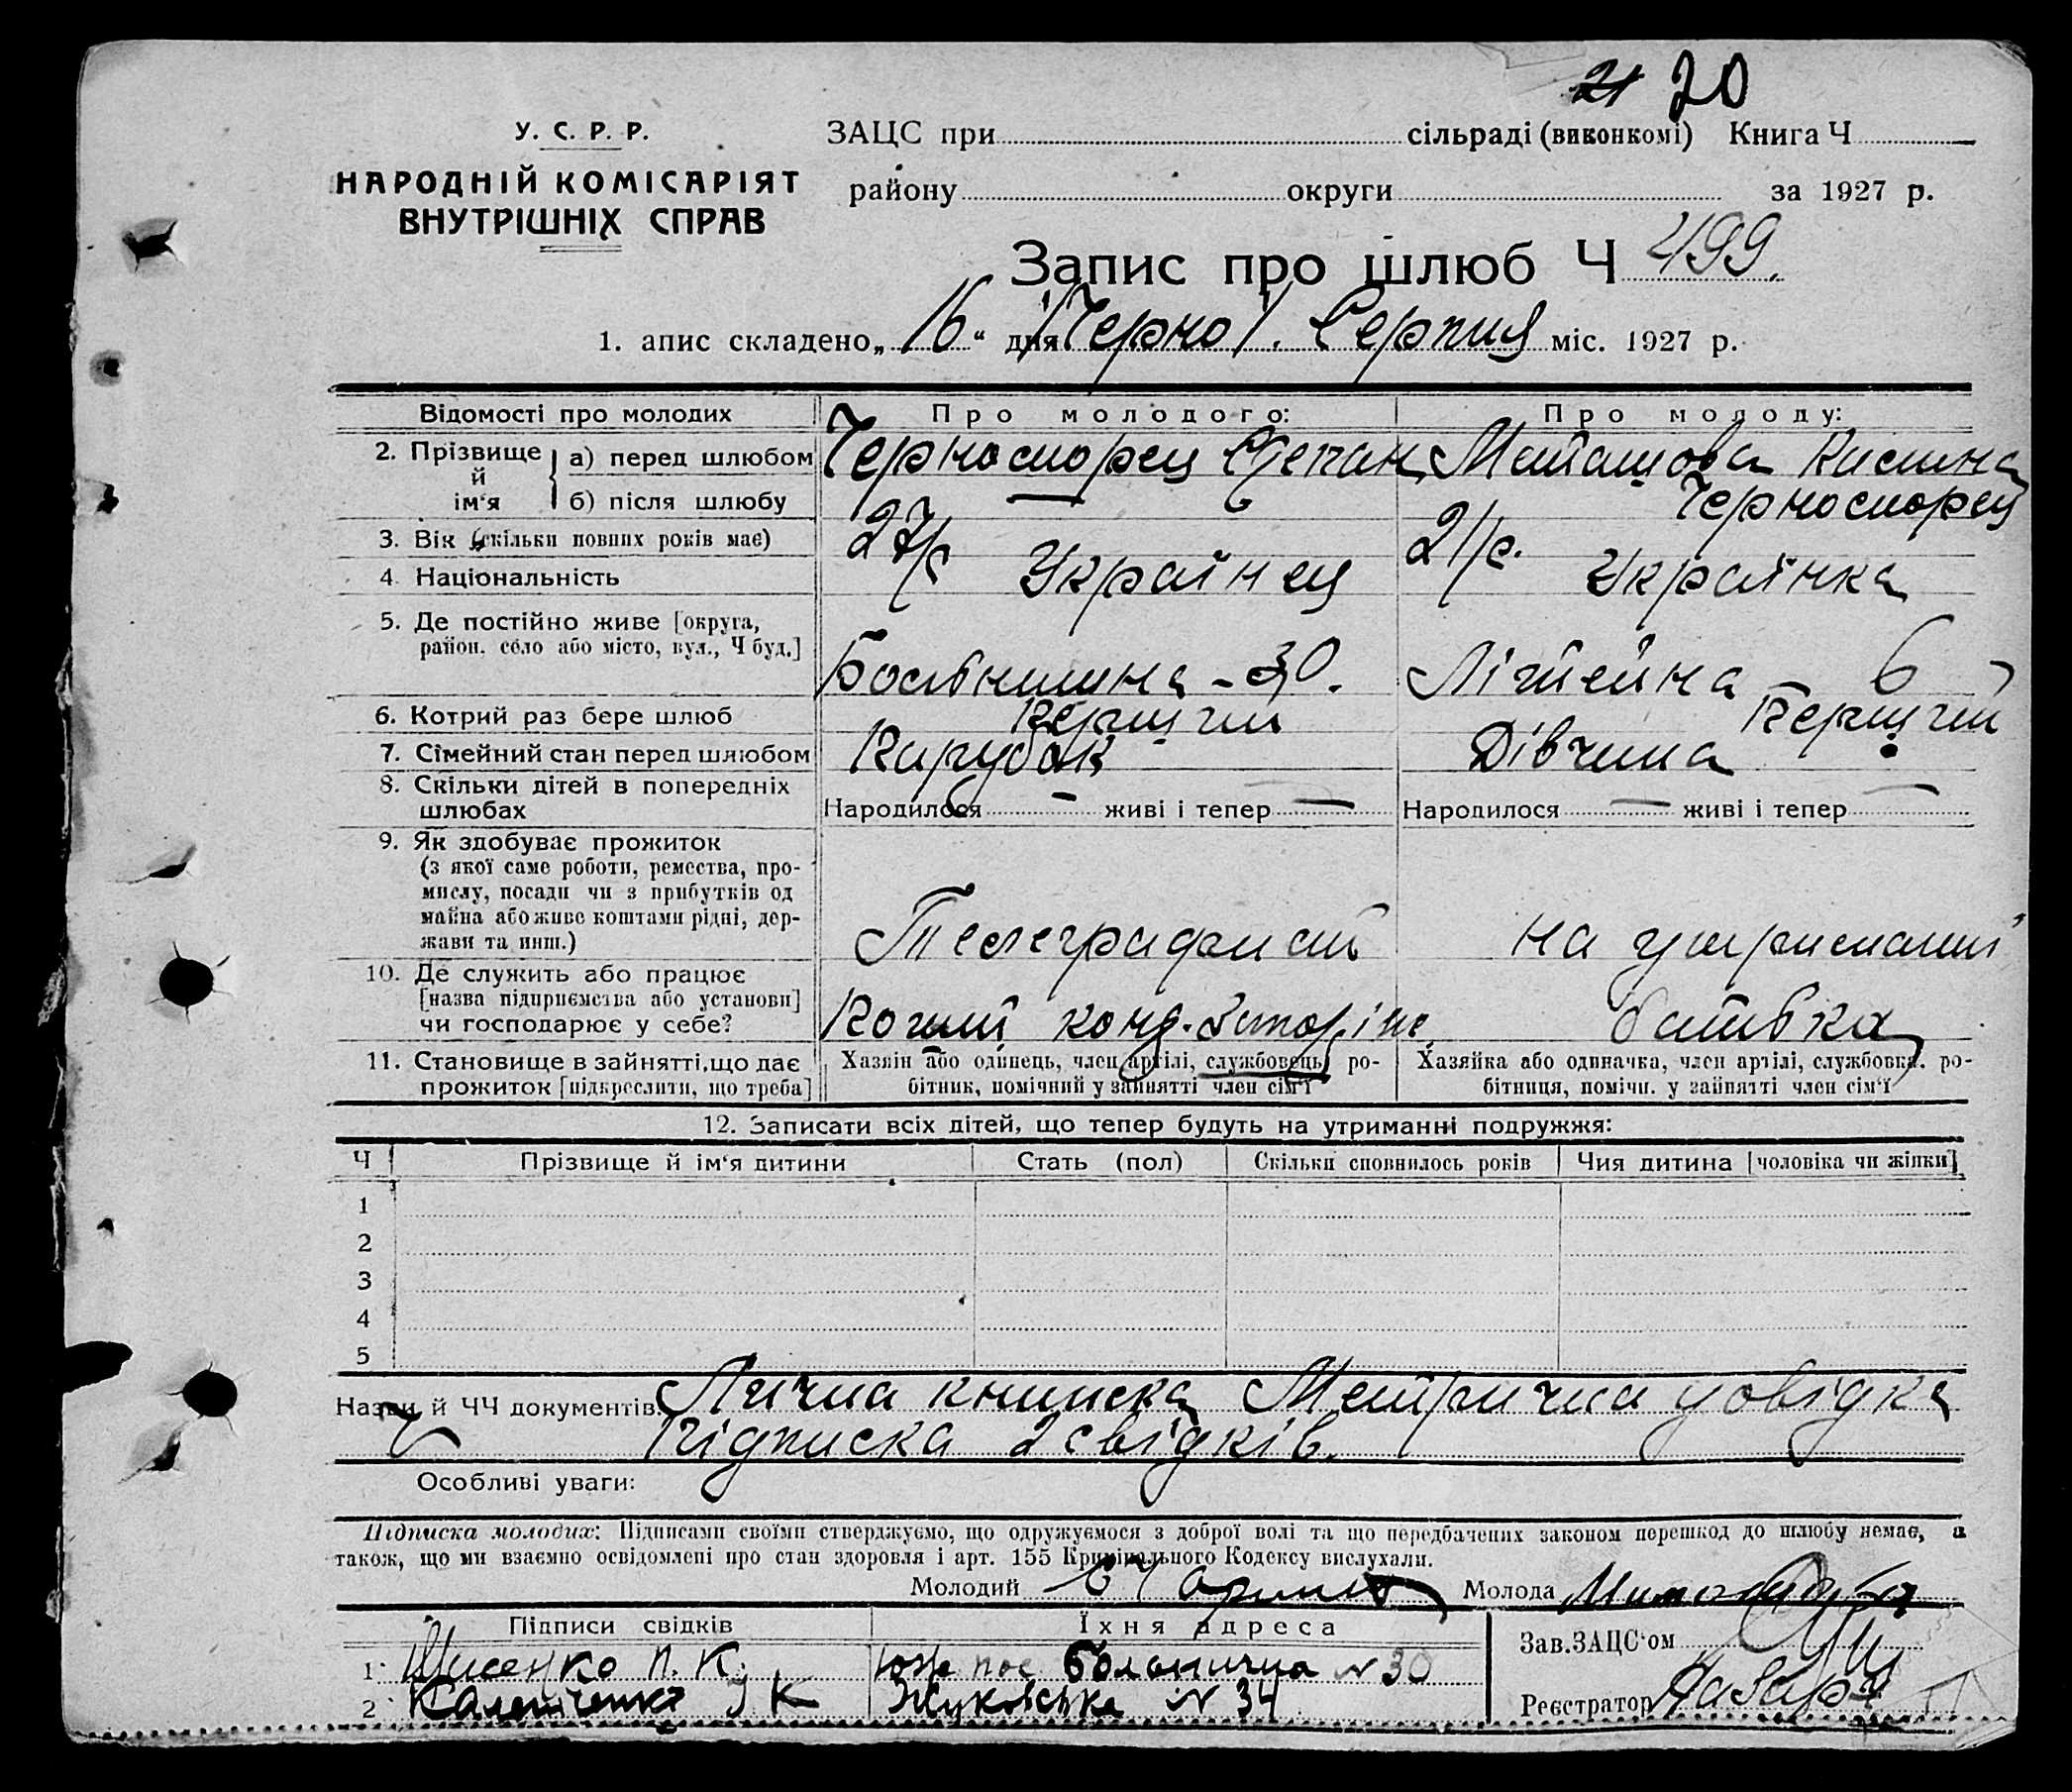 21 20
У. С. Р. Р.
НАРОДНІЙ КОМІСАРІЯТ
ВНУТРІШНІХ СПРАВ
ЗАЦС при сільраді (виконкомі) Книга Ч
району округи за 1927 р.
Запис про шлюб Ч 499.
1. апис складено „16“ дня Серпня міс. 1927 р.
Відомості про молодих
Про молодого:
Про молоду:
2. Прізвище й ім‘я
а) перед шлюбом
Черноморец Степан
б) після шлюбу
Черноморец
3. Вік (скільки повних років має)
27/р
21/р.
4. Національність
Українец
Українка
5. Де постійно живе [округа,
район, село або місто, вул., Ч буд.]
30.
Літейна – 6
6. Котрий раз бере шлюб
Перший
Перший
7. Сімейний стан перед шлюбом
Парубок
Дівчина
8. Скільки дітей в попередніх
шлюбах
Народилося – живі і тепер –
Народилося – живі і тепер –
9. Як здобуває прожиток
(з якої саме роботи, ремества, про-
мислу, посади чи з прибутків од
майна або живе коштами рідні, дер-
жави та инш.)
Телеграфист
на утриманні
10. Де служить або працює
[назва підприємства або установи]
чи господарює у себе?
батька
11. Становище в зайнятті, що дає
прожиток [підкреслити, що треба]
Хазяін або одинець, член артілі, службовець, ро-
бітник, помічний у зайнятті член сім‘ї
Хазяйка або одиначка, член артілі, службовка, ро-
бітниця, помічн. у зайнятті член сім‘ї
12. Записати всіх дітей, що тепер будуть на утриманні подружжя:
Ч Прізвище й ім‘я дитини Стать (пол) Скільки сповнилось років Чия дитина [чоловіка чи жінки]
1
2
3
4
5
Назви й ЧЧ документів: Лична книжка Метрична довідка
Підписка 2 свідків.
Особливі уваги:
Підписка молодих: Підписами своїми стверджуємо, що одружуємося з доброї волі та що передбачених законом перешкод до шлюбу немає, а
також, що ми взаємно освідомлені про стан здоровля і арт. 155 Кримінального Кодексу вислухали.
Молодий Молода
Підписи свідків
Їхня адреса
Зав. ЗАЦС‘ом
1 П. К. Юж пос Больнична № 30
2 Жуковська № 34
Реєстратор